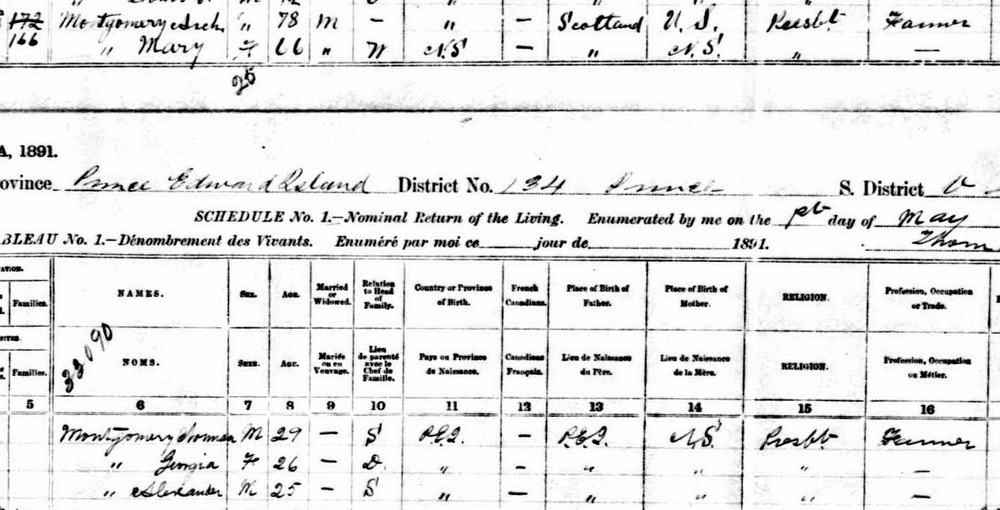 172 Montgomery Arch. " 78 M — " — Scotland U. S. Presbt. Farmer
166 " Mary F 66 " W N.S. — " N.S. " —
25
A, 1891.
ovince Prince Edward Island District No. 134 Prince S. District
SCHEDULE No. 1.—Nominal Return of the Living. Enumerated by me on the day of May
BLEAU No. 1.—Dénombrement des Vivants. Enuméré par moi ce jour de 1891. Thom
Families. NAMES. Sex. Age. Married or Widowed. Relation to Head of Family. Country or Province of Birth. French Canadians. Place of Birth of Father. Place of Birth of Mother. RELIGION. Profession, Occupation or Trade.
33090
Families. NOMS. Sexe. Age. Mariés ou en Veuvage. Lieu de parenté avec le Chef de Famille. Pays ou Province de Naissance. Canadiens Français. Lieu de Naissance du Père. Lieu de Naissance de la Mère. RELIGION. Profession, Occupation ou Métier.
5 6 7 8 9 10 11 12 13 14 15 16
Montgomery M 29 — S P.E.I. — P.E.I. N.S. Presbt Farmer
" Georgia F 26 — D " — " " " —
" Alexander M 25 — S " — " " " —